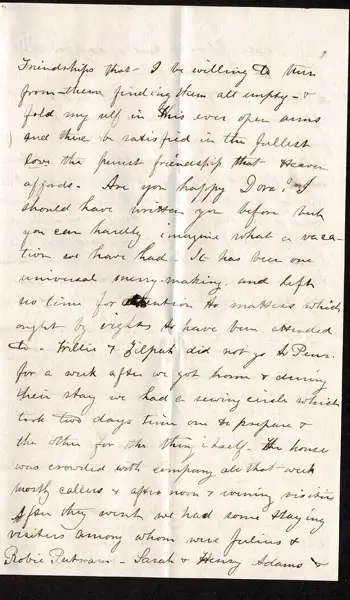 Friendships that I be willing to turn
from them finding them all empty - &
fold my self in this ever open arms
and there be satisfied in the fullest
love the purest friendship that Heaven
affords. Are you happy Dora? I
should have written you before but
you can hardly imagine what a vaca-
tion we have had - It has been one
universal merry-making and left
no time for attention to matters which
ought by rights to have been attended
to - Willie & did not go to Penn.
for a week after we got home & during
their stay we had a sewing circle which
took two days time one to prepare &
the other for the thing itself - The house
was crowded with company all that week
mostly callers & afternoon & evening visitors
After they went we had some staying
visitors among whom were Julius &
Robie Putnam - Sarah & Henry Adams &